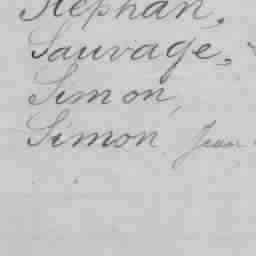 Stephan,
Sauvage,
Simon,
Simon Jean